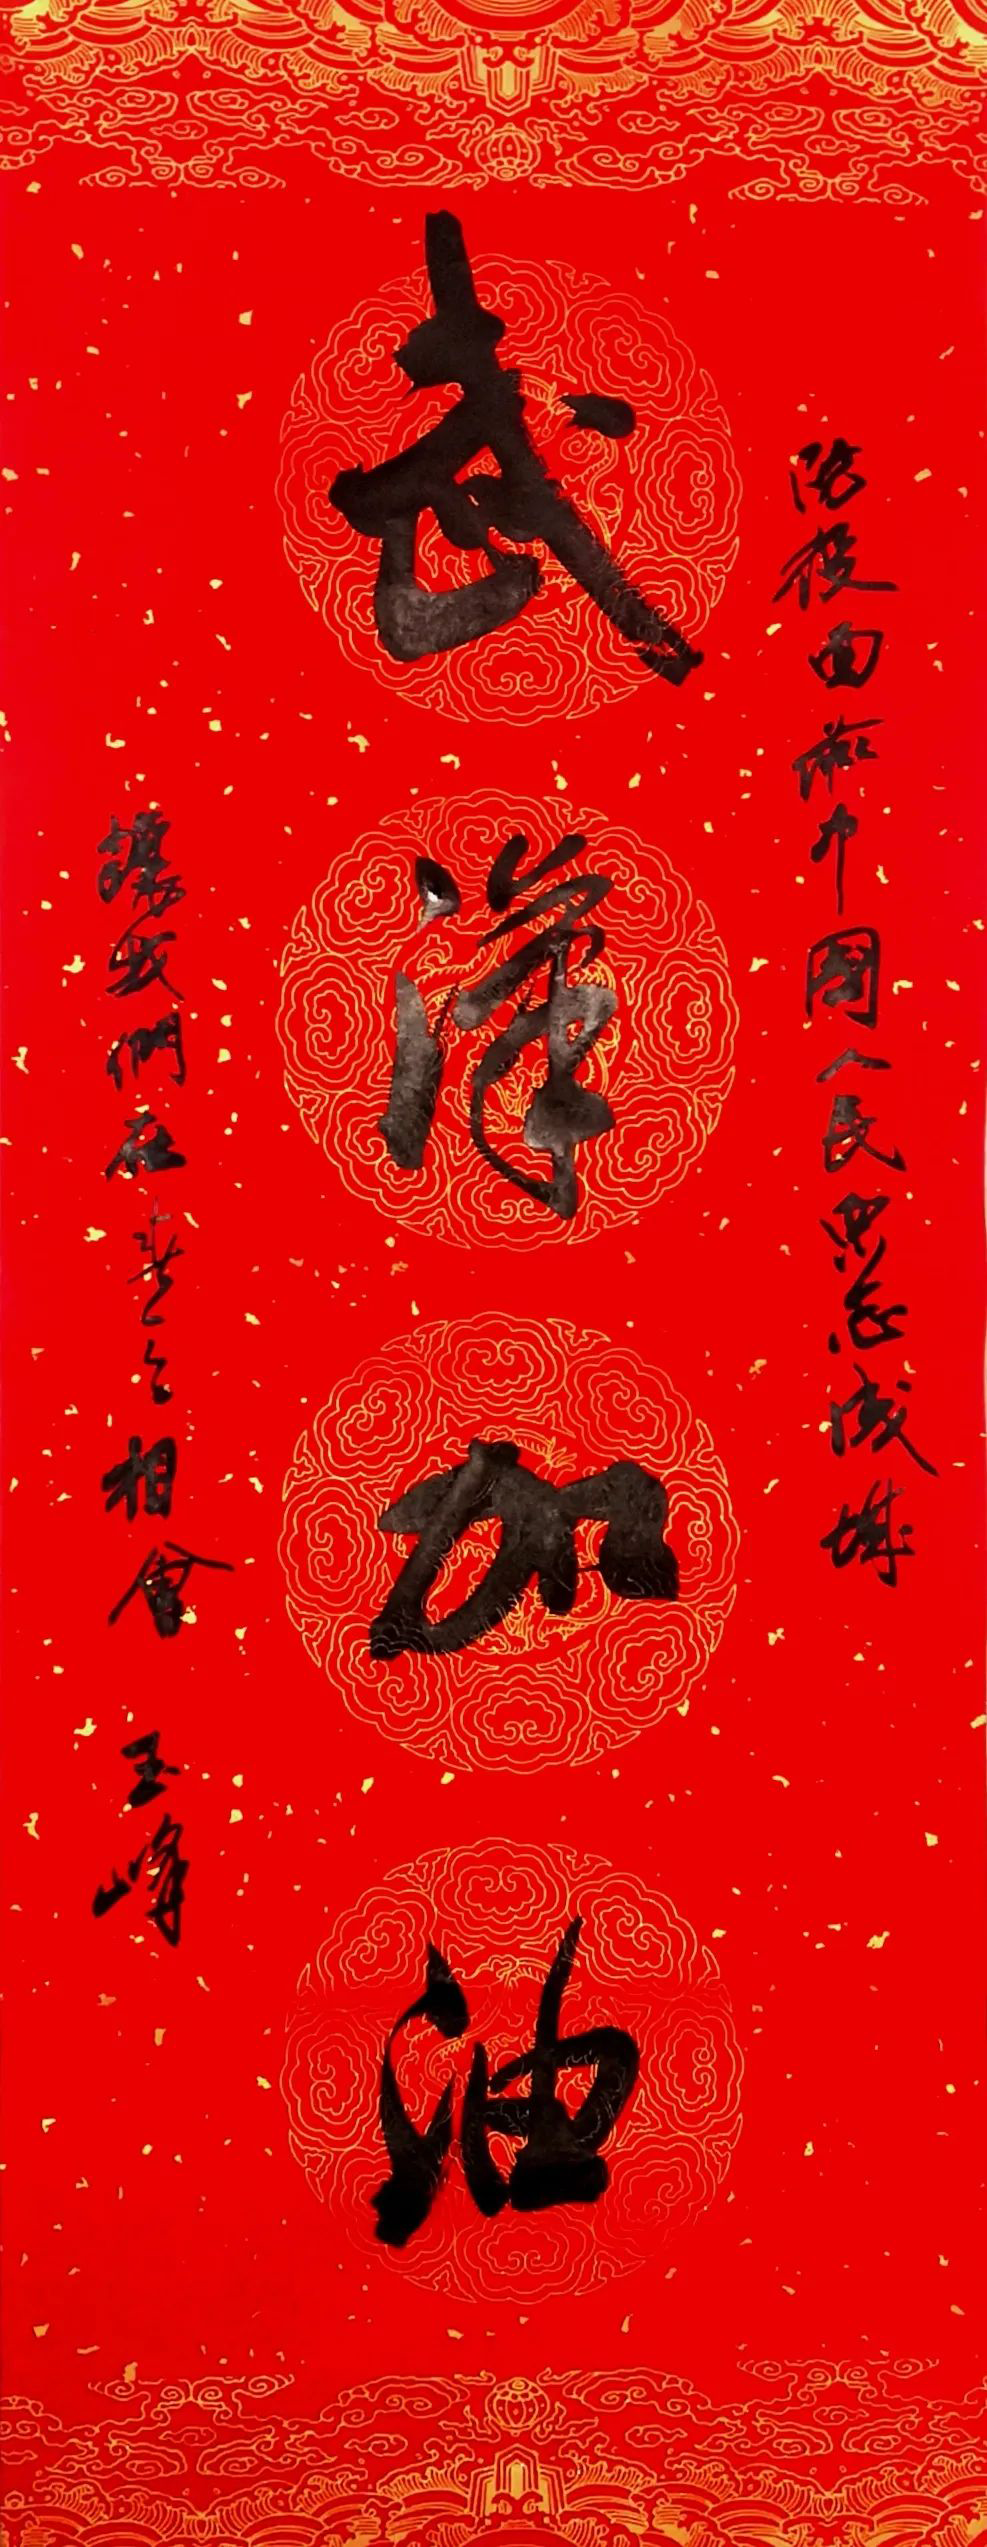 防疫面前中國人民眾志成城
武漢加油
讓我們在春天相會 玉峰